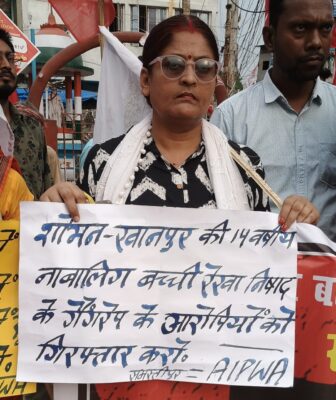 शोमन-खानपुर की 14 वर्षीय
नाबालिग बच्ची रेखा निषाद
के गैंगरेप के आरोपियों को
गिरफ्तार करो.
समस्तीपुर = AIPWA
PWA